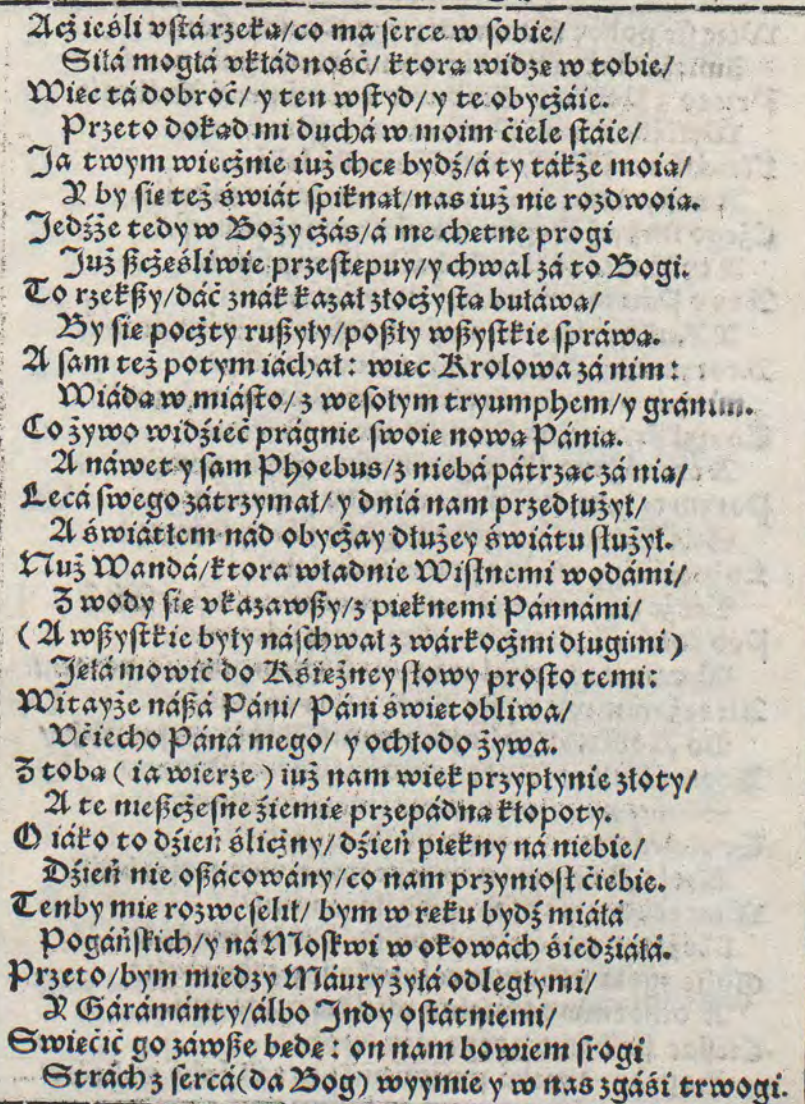 Acż ieśli vſtá rzeką/co ma ſerce w ſobie/
Siłá mogłá vkłádność/ ktora widzę w tobie/
Więc tá dobroć/ y ten wſtyd/ y te obyczáie.
Przeto dokąd mi duchá w moim ćiele ſtáie/
Ja twym wiecżnie iuż chcę bydź/á ty tákże moiá/
Y by ſie też świát ſpiknął/nas iuż nie rozdwoią.
Jedźże tedy w Boży cżás/á me chętne progi
Już ßcżęśliwie przeſtępuy/y chwal zá to Bogi.
To rzekßy/dáć znák kazał złocżyſtą bułáwą/
By ſie pocżty rußyły/poßły wßyſtkie ſpráwą.
A ſam też potym iáchał: więc Krolowa zá nim:
Wiádą w miáſto/ z weſołym tryumphem/y gránim.
Co żywo widźieć prágnie ſwoię nową Pánią.
A náwet y ſam Phoebus/z niebá pátrząc zá nią/
Lecá ſwego zátrzymał/ y dniá nam przedłużył/
A świátłem nád obycżay dłużey świátu ſłużył.
Nuż Wandá/ktora władnie Wiſlnemi wodámi/
Z wody ſie vkazawßy/z pięknemi Pánnámi/
(A wßyſtkie były náſchwał z wárkocżmi długimi)
Jęłá mowić do Kśiężney ſłowy proſto temi:
Witayże náßá Páni/ Páni świętobliwa/
Vćiecho Páná mego/ y ochłodo żywa.
Z tobą (ia wierzę) iuż nam wiek przypłynie złoty/
A te nießcżęſne źiemie przepádną kłopoty.
O iáko to dźień ślicżny/ dźień piękny ná niebie/
Dźień nie oßácowány/co nam przynioſł ćiebie.
Tenby mię rozweſelił/ bym w ręku bydź miáłá
Pogáńſkich/y ná Moſkwi w okowách śiedźiáłá.
Przeto/bym miedzy Máury żyłá odległymi/
Y Gárámánty/álbo Indy oſtátniemi/
Swięćić go záwße będę: on nam bowiem ſrogi
Strách z ſercá(da Bog) wyymie y w nas zgáśi trwogi.